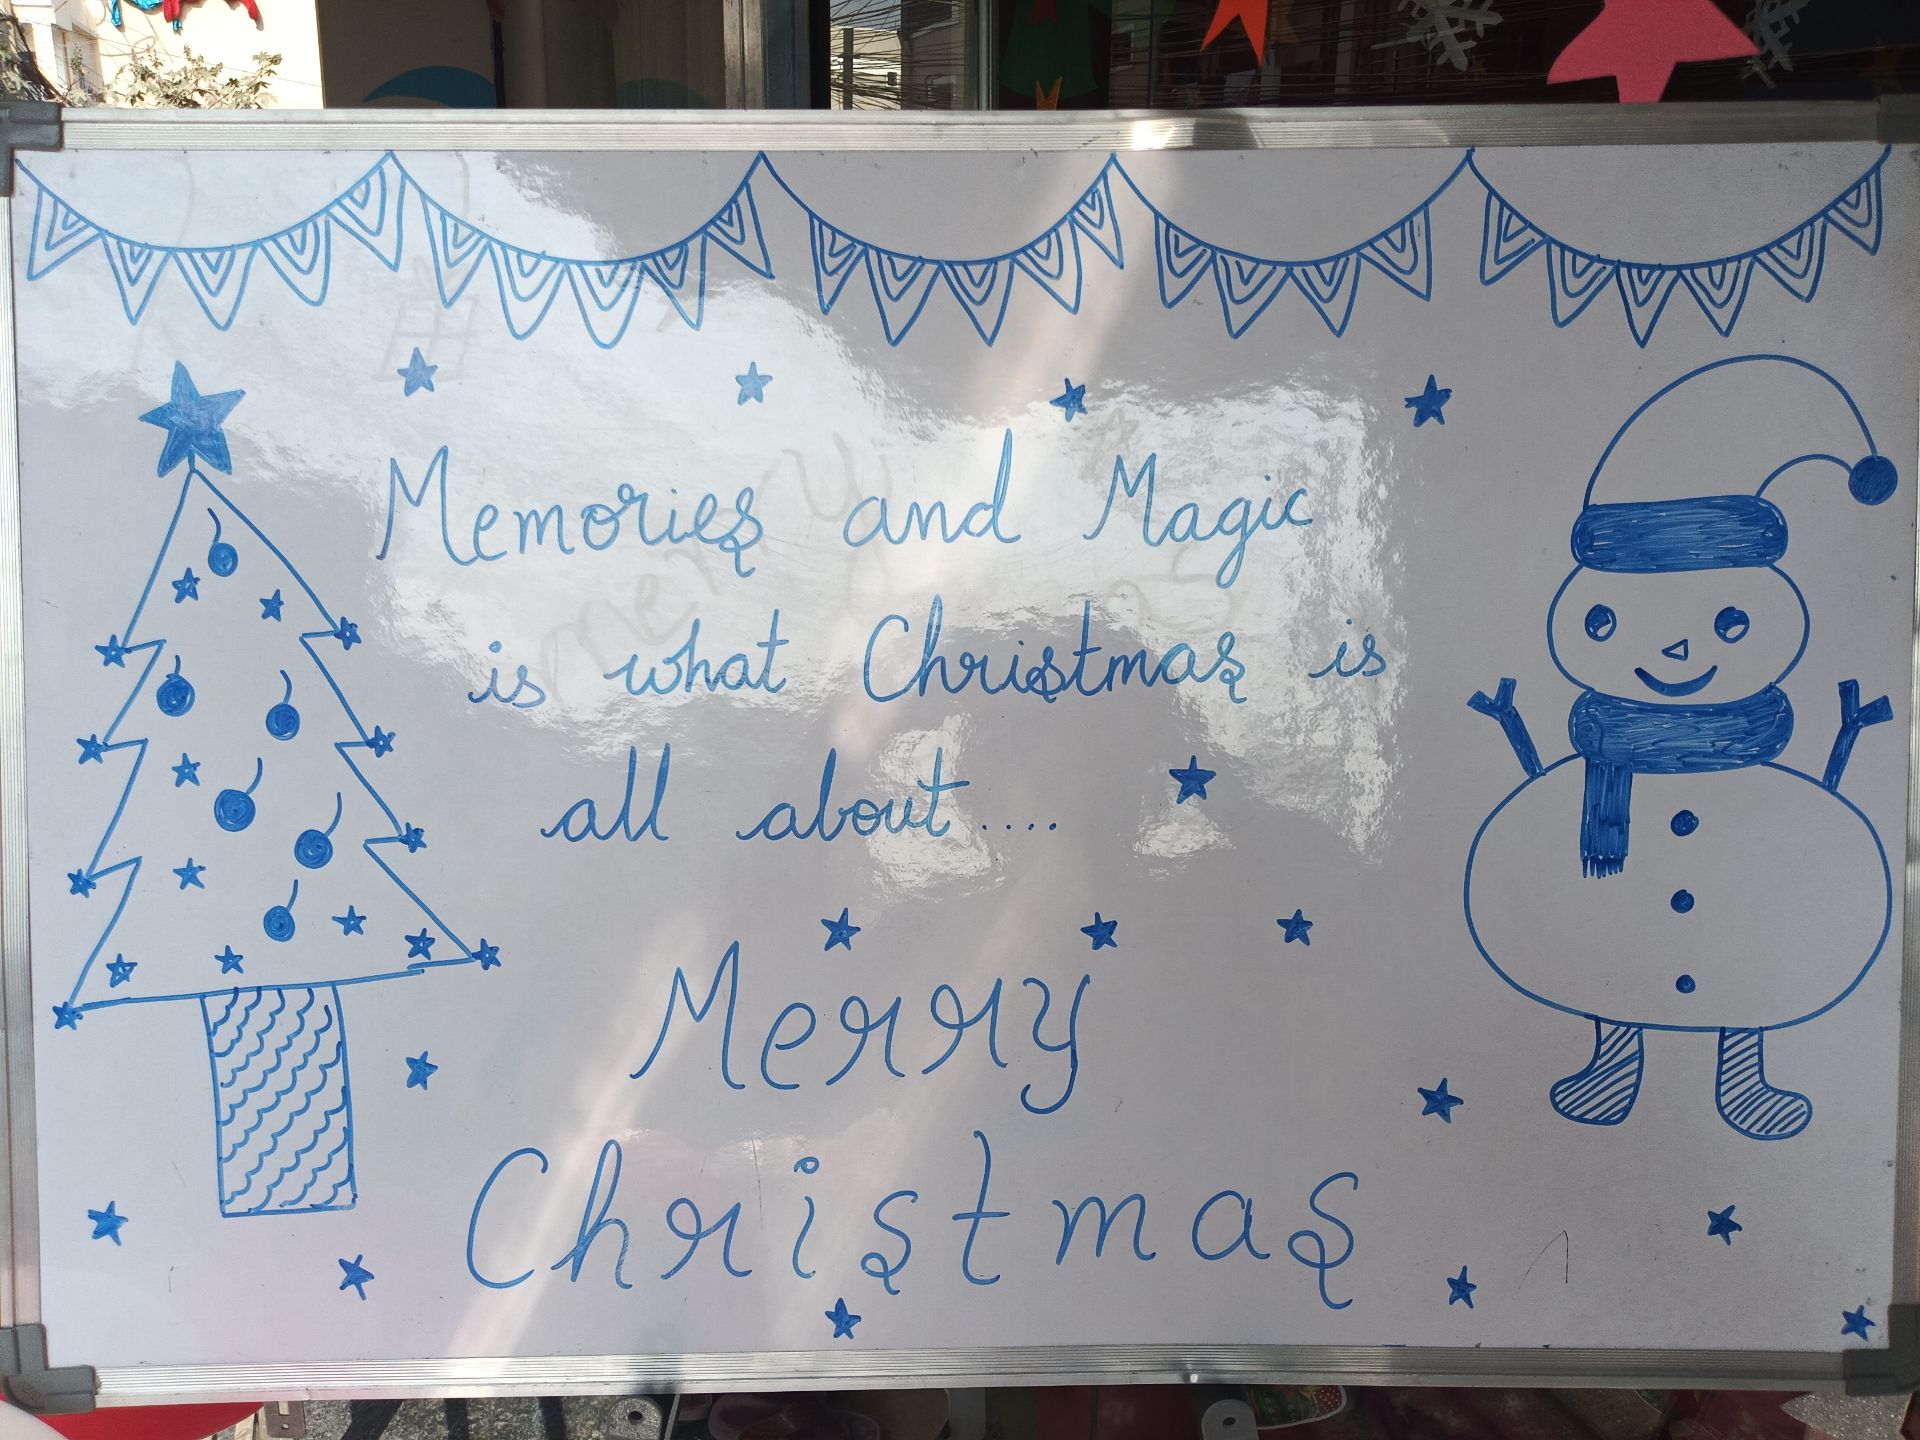 Memories and Magic
is what Christmas is
all about....
Merry
Christmas